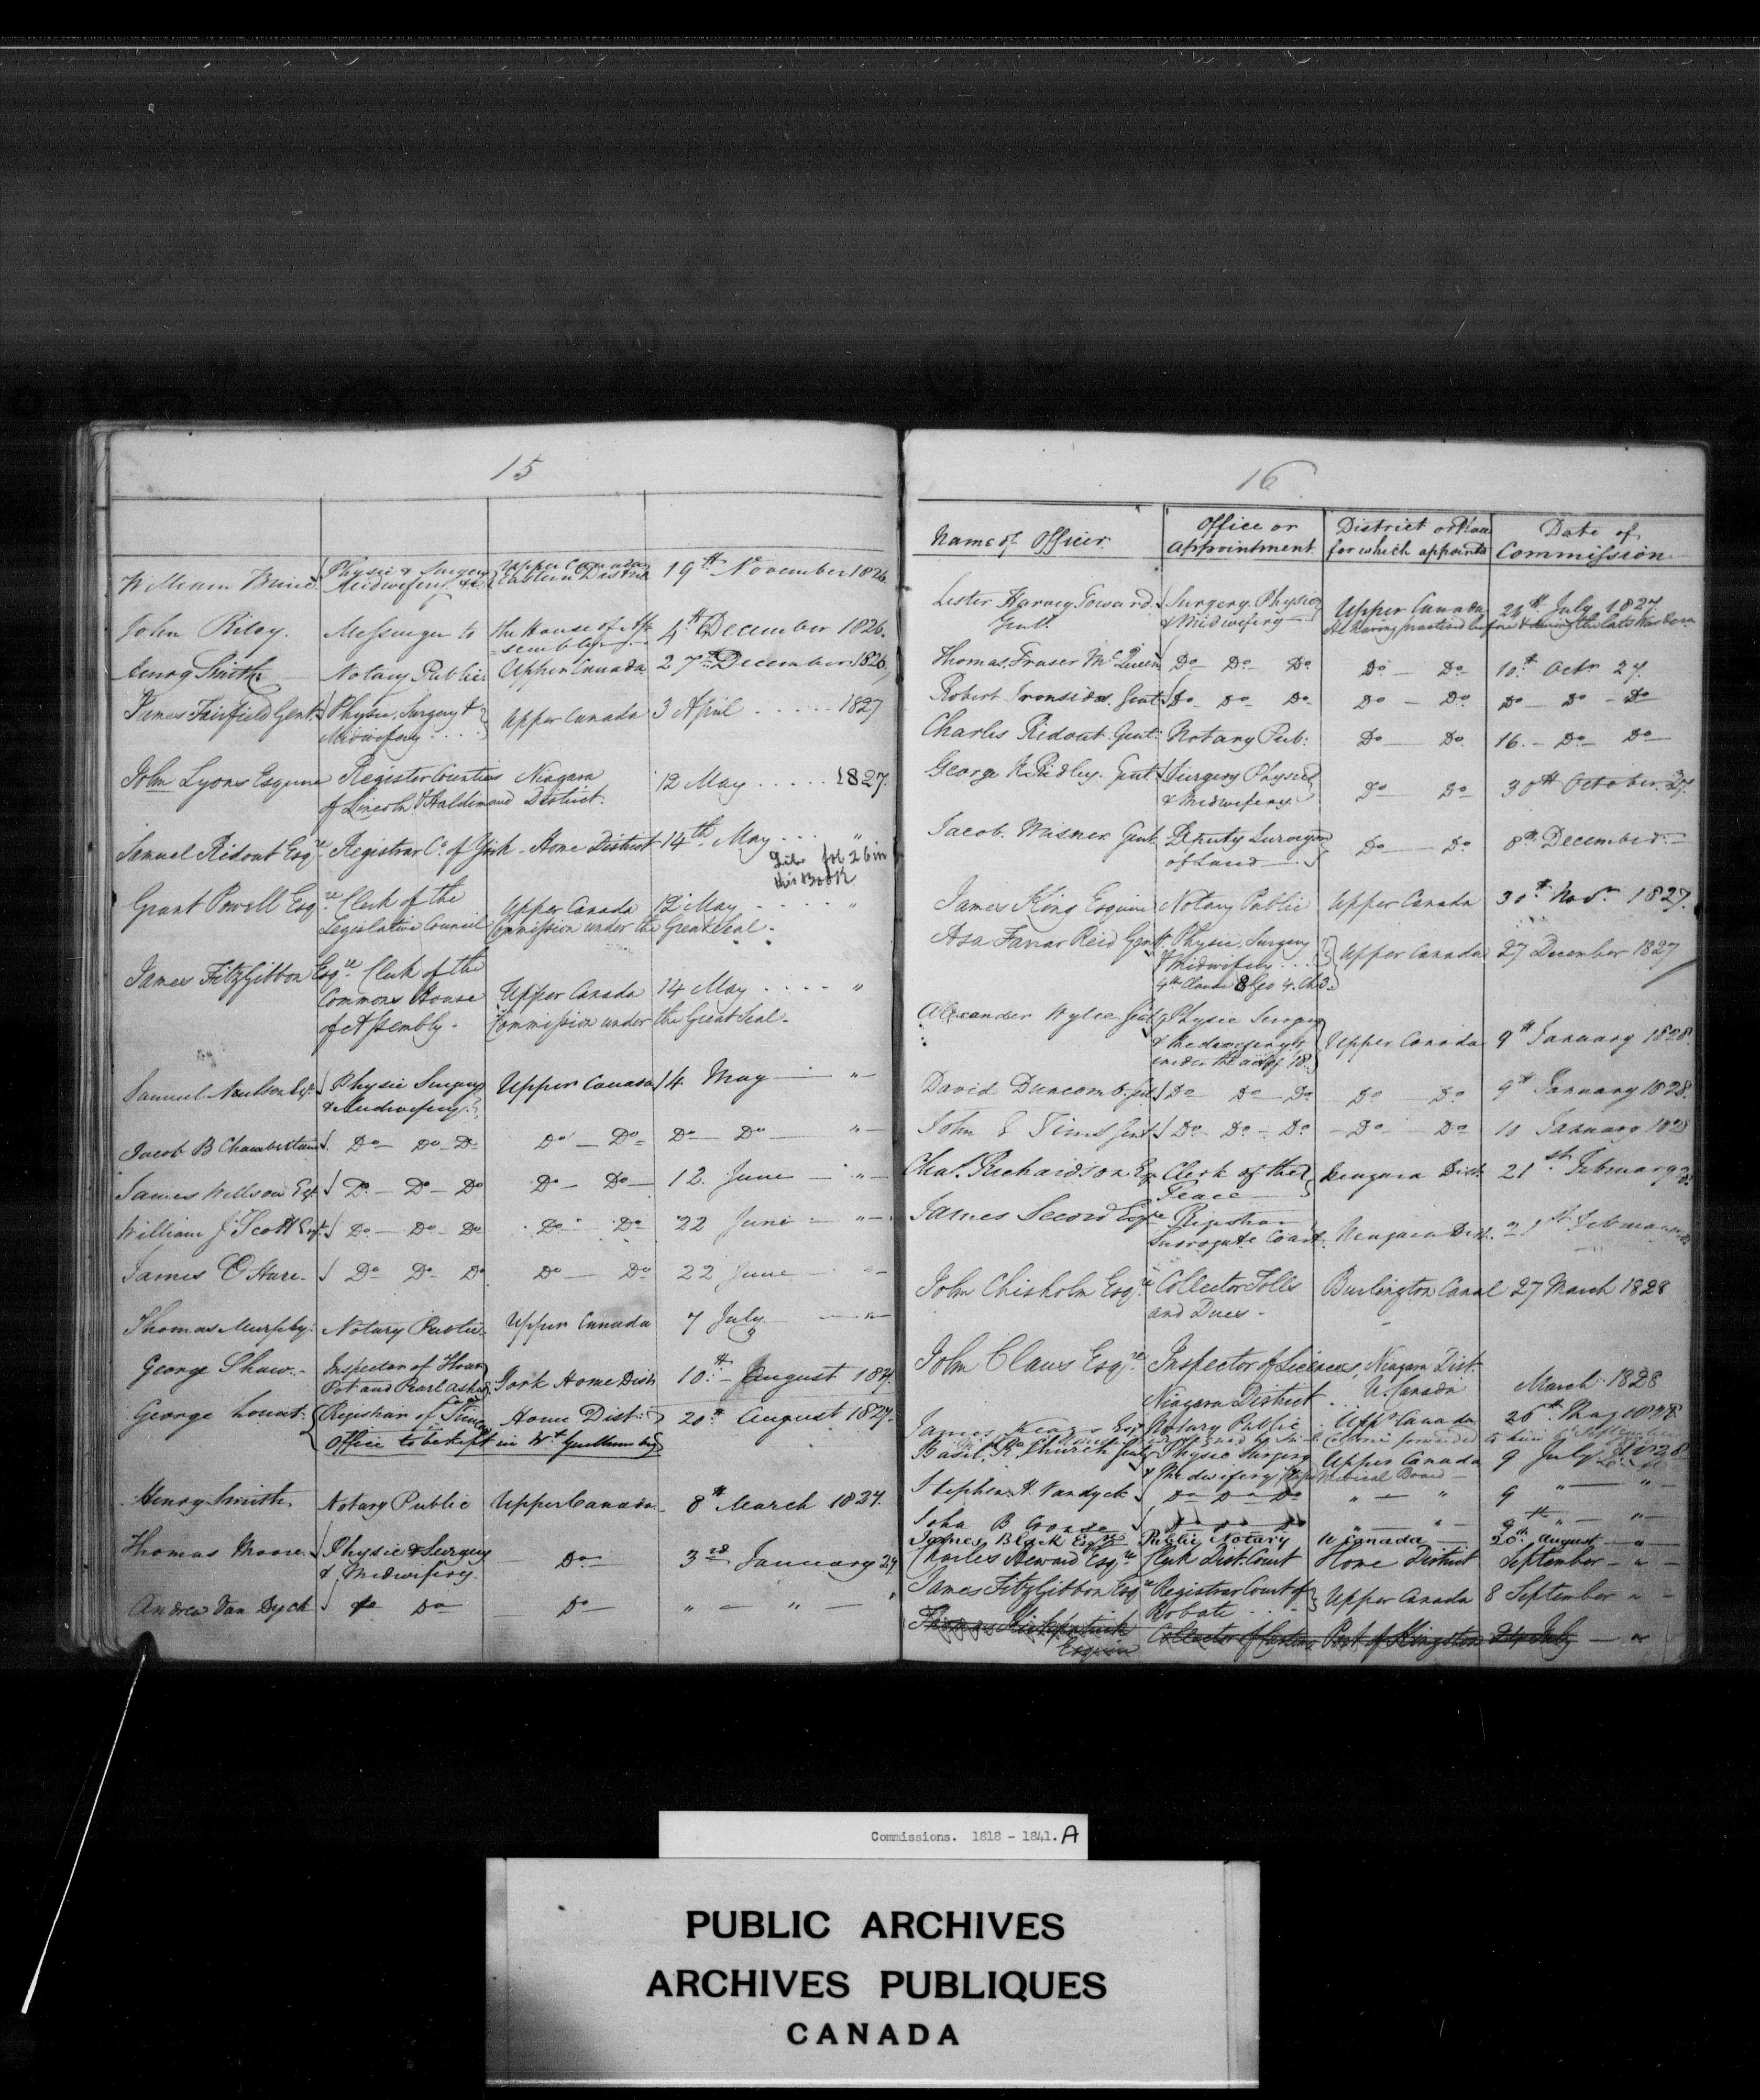 15
William Bruce Physic & Surgery Upper Canada 19th November 1826.
Midwifery &c Eastern District
John Riley. Messenger to the House of As= 4th December 1826.
=sembly
Henry Smith Notary Public Upper Canada 27th December 1826,
James Fairfield Gent. Physic, Surgery & Upper Canada 3 April ..... 1827
Midwifery ....
John Lyons Esquire Register Counties Niagara 12 May ..... 1827.
of Lincoln & Haldimand District.
Samuel Ridout Esqre Registrar Co. of York - Home District 14th May .... "
fol 26 in
this Book
Grant Powell Esqre Clerk of the Upper Canada 12 May ..... "
Legislative Council Commission under the Great Seal.
James FitzGibbon Esqre Clerk of the
Commons House Upper Canada 14 May ..... "
of Assembly - Commission under the Great Seal.
Samuel Neilson Physic Surgery Upper Canada 14 May — " —
& Midwifery.
Jacob B Chamberlain Do — Do — Do Do — Do Do — Do " —
James Willson Do — Do — Do Do — Do — 12 June — " —
William J. Scott Do — Do — Do Do Do 22 June — " —
James O Hare. Do Do Do Do — Do 22 June — " —
Thomas Murphy. Notary Public Upper Canada 7 July — " —
George Shaw.- Inspector of Flour York Home Distt 10th August 1827.
Pot and Pearl Ashes
George Lount. Registrar of Coy Simcoe Home Dist: 20th August 1827.
Office to be kept in Wt Gwillimbury
Henry Smith. Notary Public Upper Canada 8th March 1827.
Thomas Moore. Physic & Surgery Do 3rd January 27
& Midwifery.
Andrew Van Dyck Do Do Do " — " — "
16
Name of Officer. Office or District or Place Date of
Appointment. for which appointed Commission
Lester Harvey Surgery, Physic Upper Canada. 26th July 1827.
Gent. & Midwifery He having practised before & during the late War
Thomas Fraser McQueen Do Do Do Do — Do 10th Octr 27.
Robert Ironsides Gent Do Do Do Do — Do Do — Do — Do
Charles Ridout Gent. Notary Pub: Do — Do 16. — Do — Do
George N. Ridley. Gent Surgery Physic Do Do 30th October. 27.
& Midwifery.
Jacob. Misner Gent. Deputy Surveyor Do Do 8th December. —
of Land
James King Esquire Notary Public Upper Canada 30th Novr. 1827.
Asa Farrar Reid Gent. Physic, Surgery Upper Canada 27 December 1827
& Midwifery ...
4th Clause 8 Geo 4. Ch 3.
Alexander Wylie Gent Physic Surgery
& Midwifery Upper Canada 9th January 1828.
under the act of 18.
David Duncomb. Do Do Do Do Do 9th January 1828.
John E Tims Gent Do Do — Do — Do — Do 10 January 1828
Chas. Richardson Esq Clerk of the Niagara Dist. 21st February 28.
Peace
James Secord Esqre Registrar
Surrogate Court. Niagara Dist. 21st February
John Chisholm Esqre Collector Tolls Burlington Canal 27 March 1828
and Dues -
John Claus Esqre Inspector of Licences, Niagara Dist.
Niagara District U. Canada March 1828
James Esq Notary Public Uppr Canada 26th May 1828
forwarded to him
Basil R. Church Gent Physic Surgery Upper Canada 9 July 1828
& Midwifery Medical Board —
Stephen H. Vandyck Do Do Do " — " 9 " — " —
John B Do Do Do " — " — 9th " — " —
James Black Esqre Public Notary U Canada 20th August — " —
Charles Heward Esqre Clerk Dist. Court Home District September — " —
James FitzGibbon Esqre Registrar Court of Upper Canada 8 September " —
Probate ...
Thomas Kirkpatrick Collector of Customs Port of Kingston 24 July — "
Esquire
Commissions. 1818 - 1841. A
PUBLIC ARCHIVES
ARCHIVES PUBLIQUES
CANADA